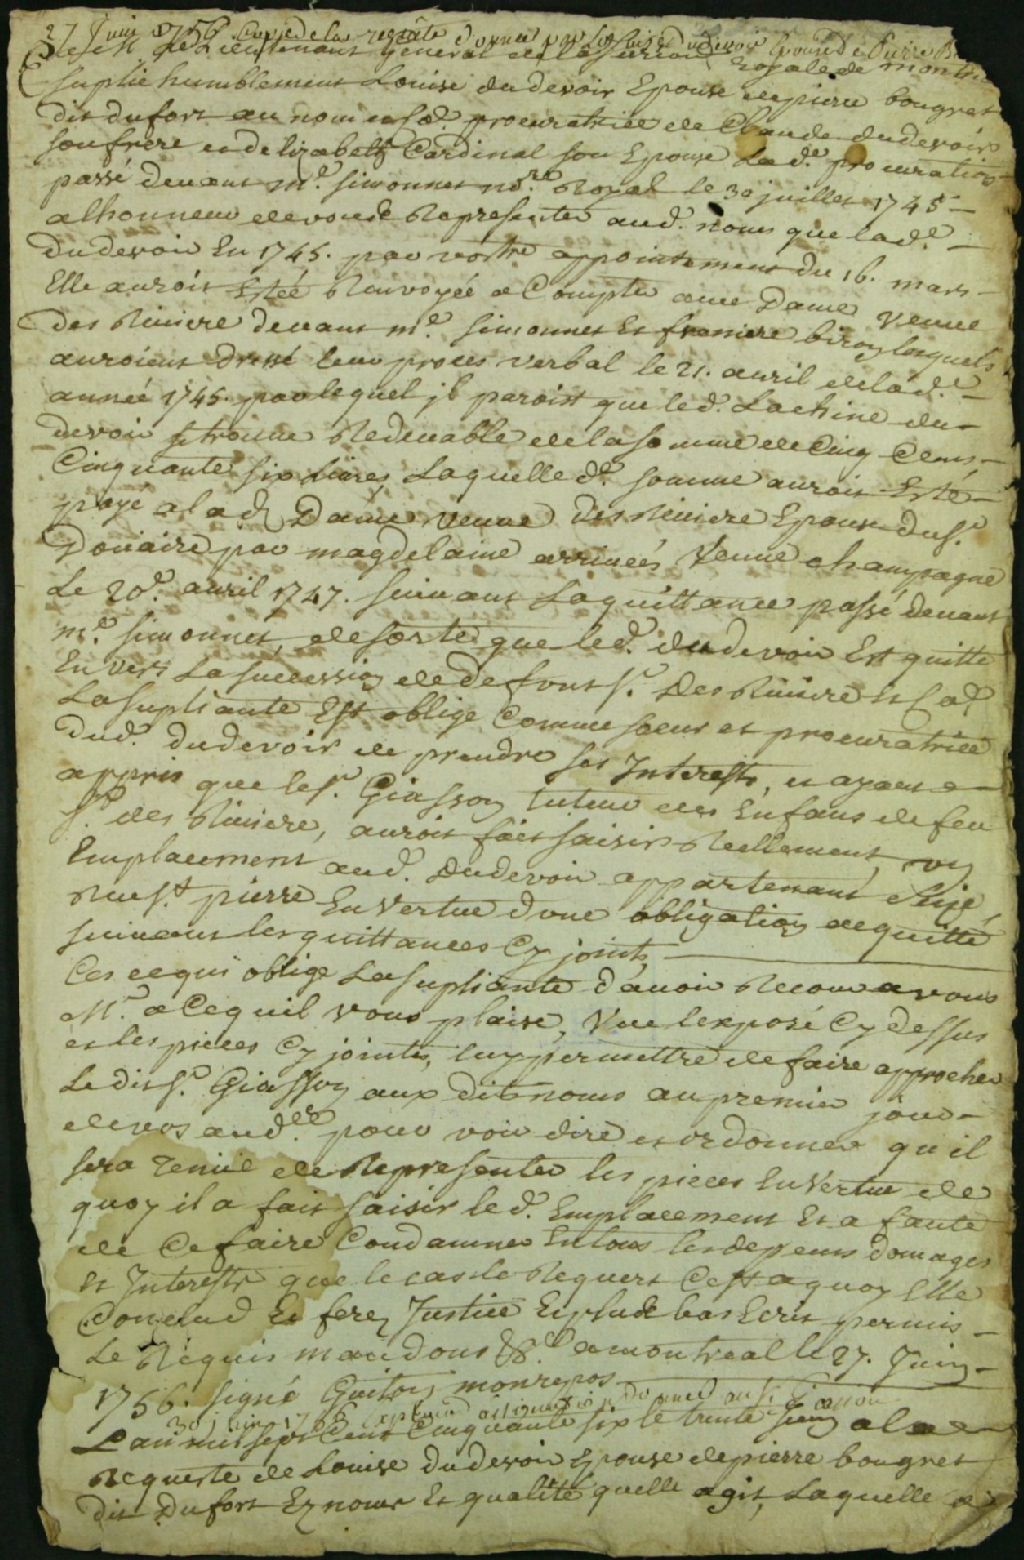 27 Juin 1756 Copie de la requête donnée par Louise dudevoir Epouse de Pierre
Lieutenant General de la Jurisdiction Royale de montreal
Suplie humblement Louise dudevoir Epouse de pierre bougret
dit dufort au nom et Co.e procuratrice de Claude dudevoir
son frere et delizabeth Cardinal son Epouse Lad.e procuration
passé devant M.e simonnet n.re Royal le 30 juillet 1745 —
alhonneur de vous Representer aud. nom que lad.e —
Dudevoir En 1745. par vostre appointement du 16. mars —
Elle auroit Estée Renvoyée a Compter avec Dame Veuve
des Riviere devant m.e simonnet Et franiere lesquels
auroient dressé leur proces verbal le 21. avril de lad.e
année 1745. par lequel jl paroist que led. Lachine du —
devoir se trouve Redevable de la somme de Cinq Cens —
Cinquante six Livres Laquelle d.e somme auroit Esté —
payé a lad. Dame veuve des Riviere Epouse du s.r
Douaire par magdelaine arrivées Veuve champagne
Le 20.e avril 1747. suivant La quittance passé devant
m.e simonnet, de sorte que led. dudevoir Est quitte
Envers La succession de deffunt s.r Des Riviere Et
La supliante Est oblige Comme soeur et procuratrice
dud. dudevoir de prendre ses Interests, et ayant —
appris que le s.r Giasson tuteur des Enfans de feu
s.r des Riviere, auroit fait saisir Reellement un
Emplacement aud. Dudevoir appartenant, sise
Rue s.t pierre En Vertue d'une obligation acquitté
suivant les quittances Cy jointes
Ces ce qui oblige La supliante d'avoir Recour a vous
M.r a Ce quil vous plaise, Vue lexposé Cy dessus
et les pieces Cy jointes, luy permettre de faire approcher
Le dit s.r Giasson aux dits noms au premier jour —
de vos aud.ces pour voir dire et ordonner qu'il
sera tenüe de Representer les pieces En Vertue de
quoy il a fait saisir led. Emplacement Et a faute
de Ce faire Condamner En tous les depens domages
Et Interests que le cas le Requert Cest a quoy Elle
Conclud Et ferez Justice Et plus bas Ecrit permis —
Le Requis mandons &.a a montreal le 27. Juin —
1756. signé Guiton monrepos
30 juin 1756 Exploit assignation donnée au s.r Giasson
L'an mil sept Cent Cinquante six le trente Juin a la —
Requeste de Louise dudevoir Epouse de pierre bougret
dit Dufort Es nom Et qualité quelle agit, Laquelle a